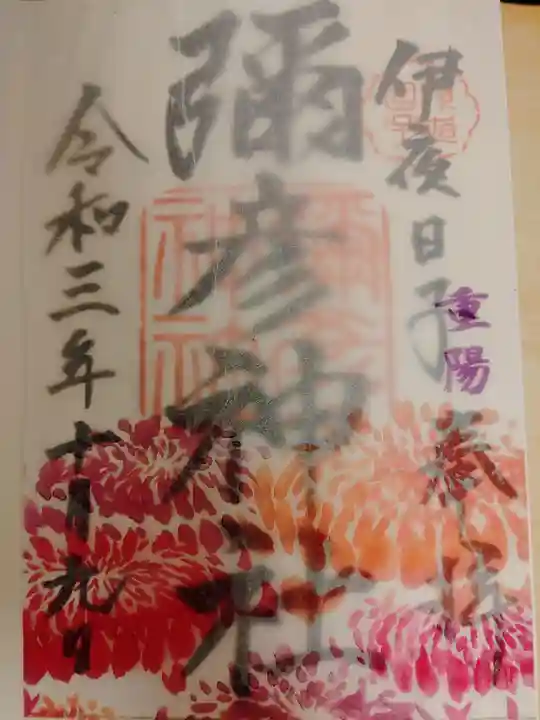 伊夜日子
重陽
奉拝
彌彦神社
令和三年十月十九日